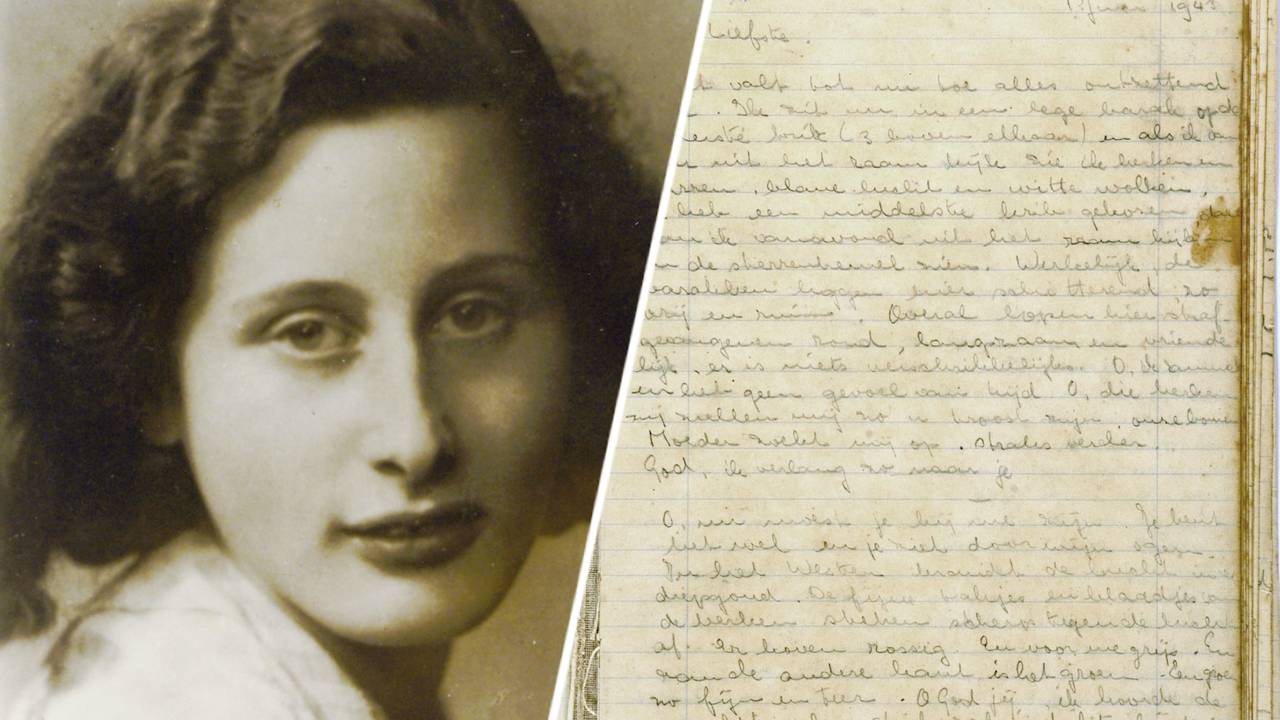 juni 1943
Liefste.
valt tot nu toe alles ontzettend
. Ik zit nu in een lege barak op de
brik (3 boven elkaar) en als ik dan
uit het raam kijk zie ik berken en
, blauwe lucht en witte wolken,
heb een middelste brik gekozen, dan
kan ik vanavond uit het raam kijken
de sterrenhemel zien. Werkelijk, de
barakken liggen hier schitterend zo
vrij en ruim. Overal lopen hier straf-
gevangenen rond, langzaam en vriende-
lijk, er is niets verschrikkelijks. O, ik
en heb geen gevoel van tijd O, die berken
zij zullen mij zo'n troost zijn
Moeder zoekt mij op. straks verder.
God, ik verlang zo naar je
O, nu moest je bij me zijn. Je bent
het wel en je ziet door mijn ogen.
In het Westen brandt de lucht in
diepgoud. De fijne takjes en blaadjes v
de berken steken scherp tegen de lucht
af. Er boven rossig. En voor me grijs. En
aan de andere kant is het groen. En
zo fijn en teer. O God jij, ik hoorde de